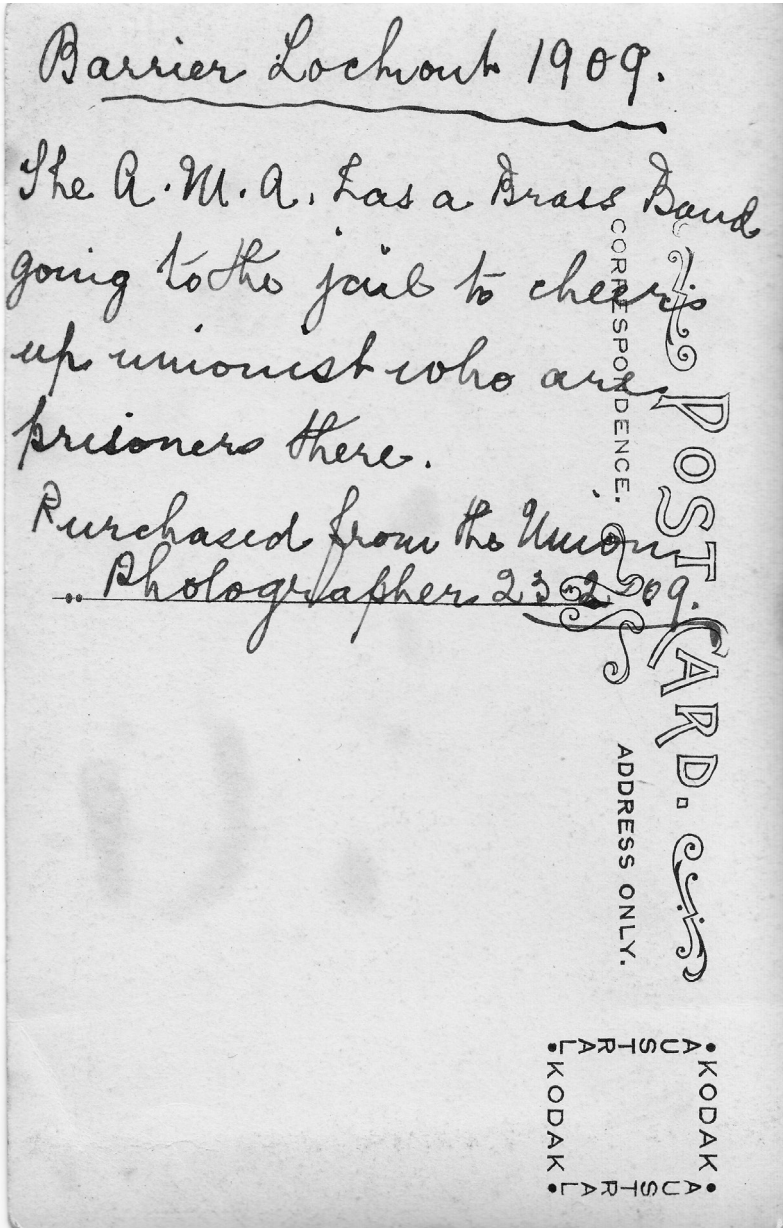 Barrier Lockout 1909.
The A.M.A. has a Brass Band
going to the jail to cheer
up unionist who are
prisoners there.
Purchased from the Union
Photographer 23 2 09.
CORRESPONDENCE.
POST CARD.
ADDRESS ONLY.
•KODAK•
AUSTRAL
AUSTRAL
•KODAK•